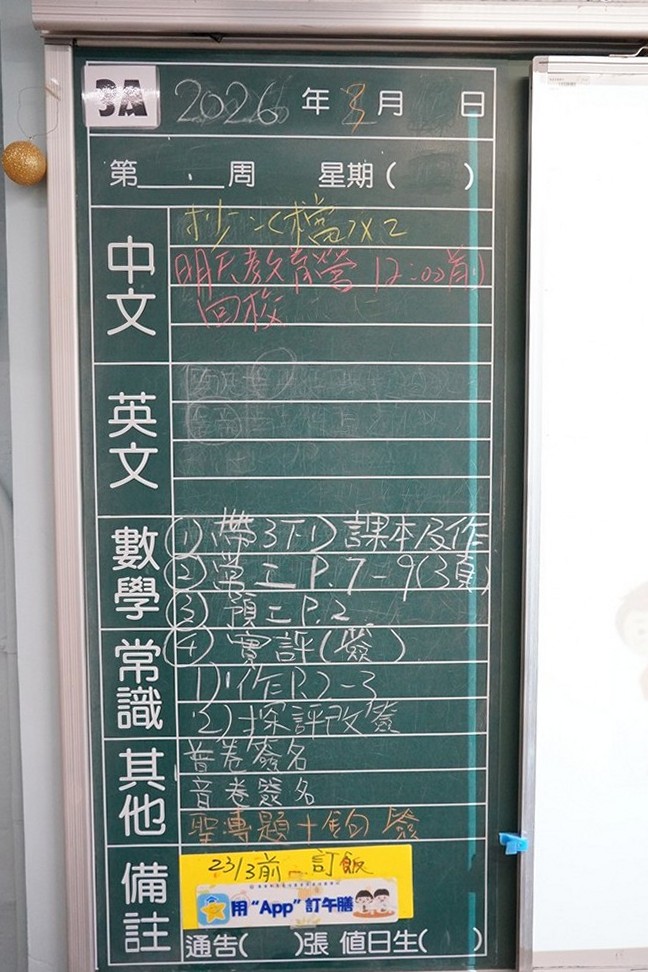 3A 2026年3月 日
第 周 星期( )
中文
抄 <檔>x2
明天教育營 12:00前
回校
英文
數學
① 帶3下1)課本及作
② 當工 P.7-9(3頁)
③ 預工 P.2
④ 實評(簽)
常識
1) 作P.2-3
2) 探評改簽
其他
普卷簽名
音卷簽名
聖專題+ 簽
備註
23/3前 訂飯
用“App”訂午膳
通告( )張 值日生( )